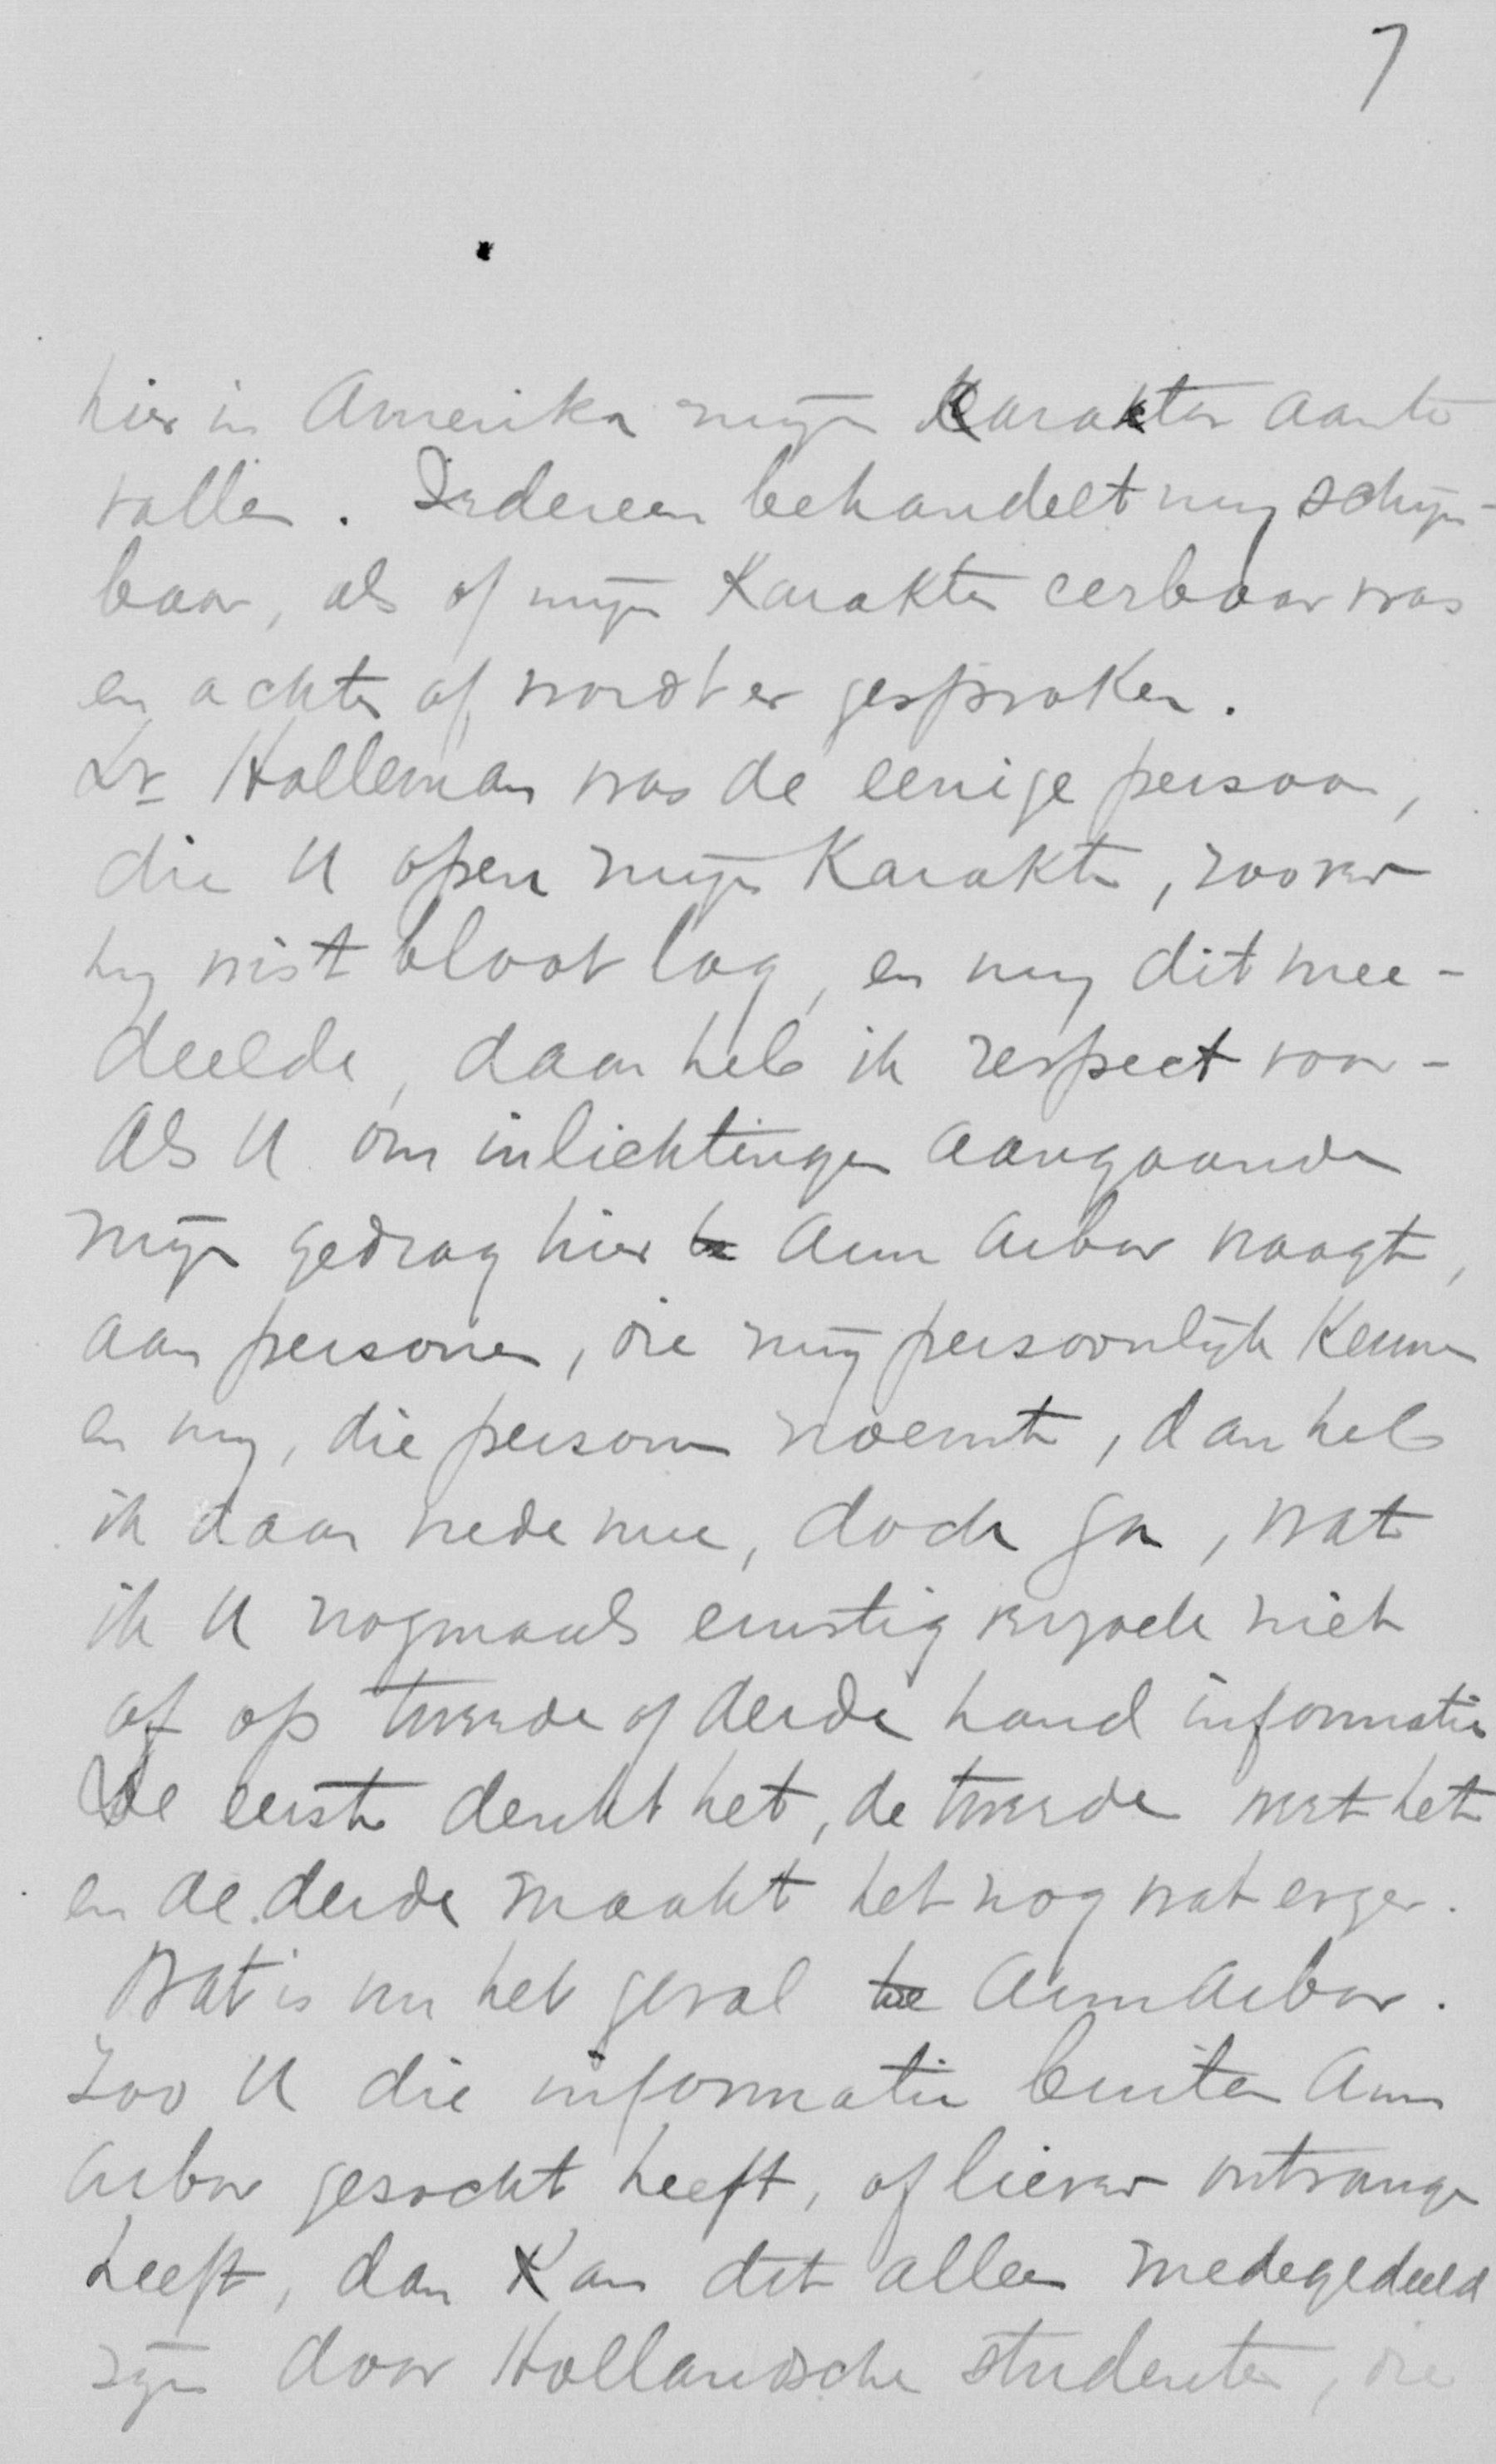 7
hier in Amerika mijn Karakter aante
vallen. Iedereen behandelt mij schijn-
baar, als of mijn Karakter eerbaar was
en achter af wordt er gesproken.
Dr Holleman was de eenige persoon,
die U open mijn Karakter, zoover
hij wist bloot lag, en mij dit mee-
deelde, daar heb ik respect voor -
Als U om inlichtingen aangaande
mijn gedrag hier te Ann Arbor vraagt,
aan personen, die mij persoonlijk Kennen
en mij, die personen noemt, dan heb
ik daar vrede mee, doch ga, wat
ik U nogmaals ernstig verzoek niet
af op tweede of derde hand informatie
De eerste denkt het, de tweede weet het
en de derde maakt het nog wat erger.
Wat is nu het geval te Ann Arbor.
Zoo U die informatie buiten Ann
Arbor gezocht heeft, of liever ontvangen
heeft, dan Kan dit alleen medegedeeld
zijn door Hollandsche studenten, die